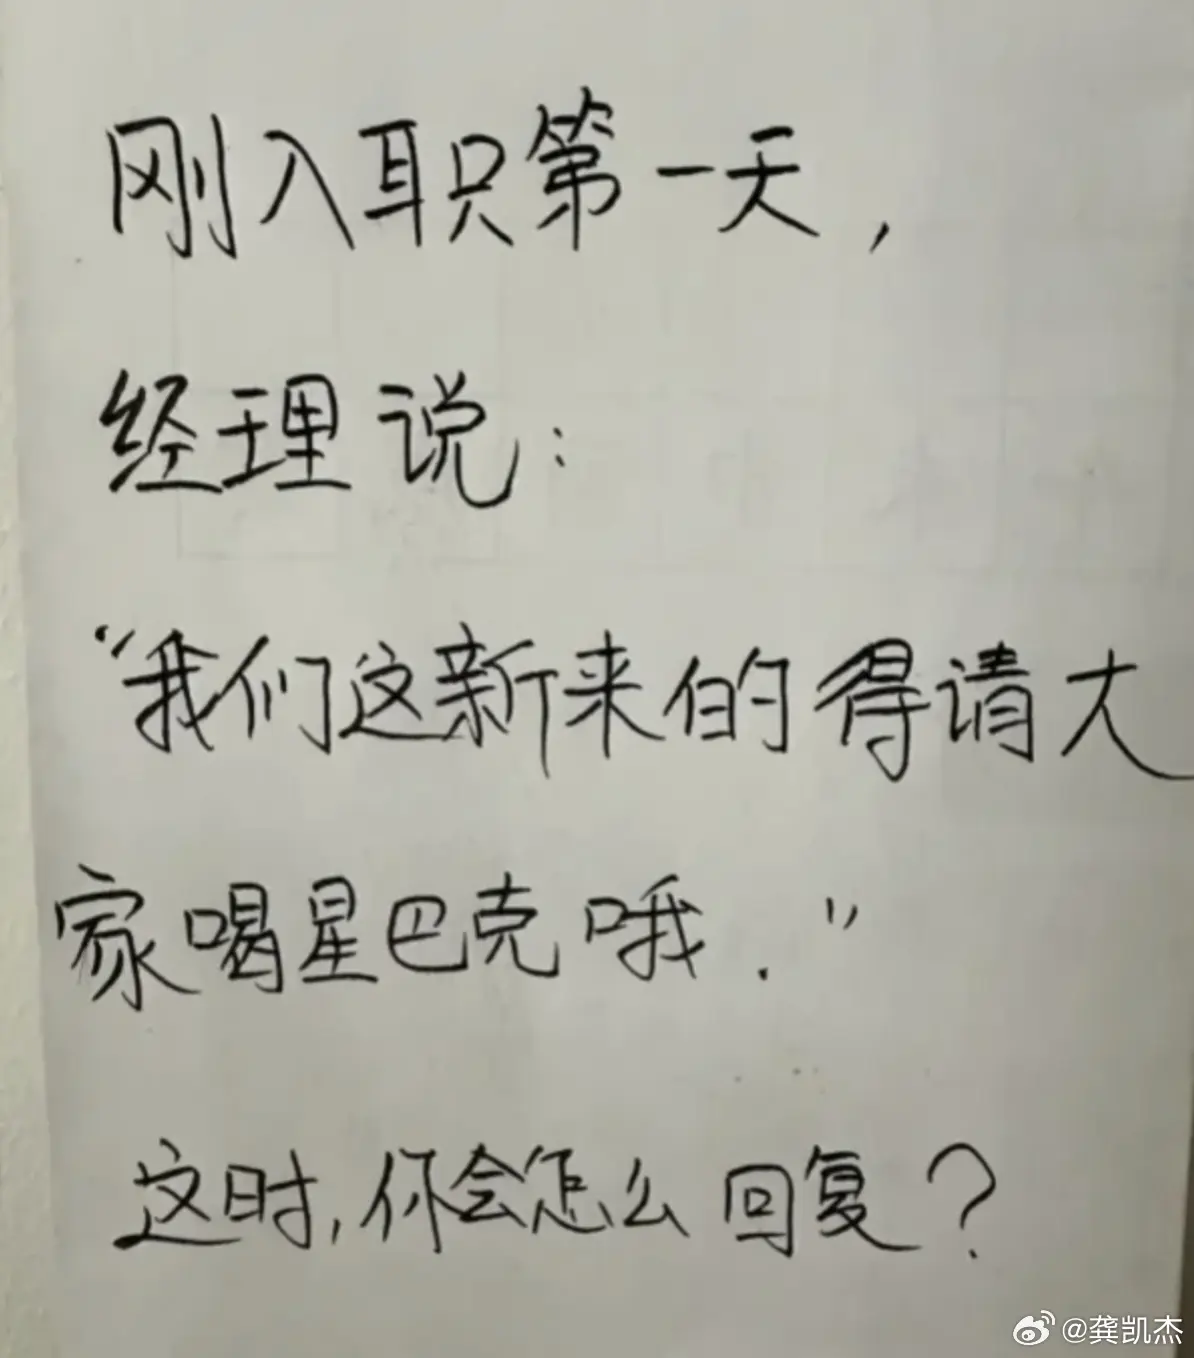 刚入职第一天，
经理说：
“我们这新来的得请大
家喝星巴克哦．”
这时，你会怎么回复？
@龚凯杰